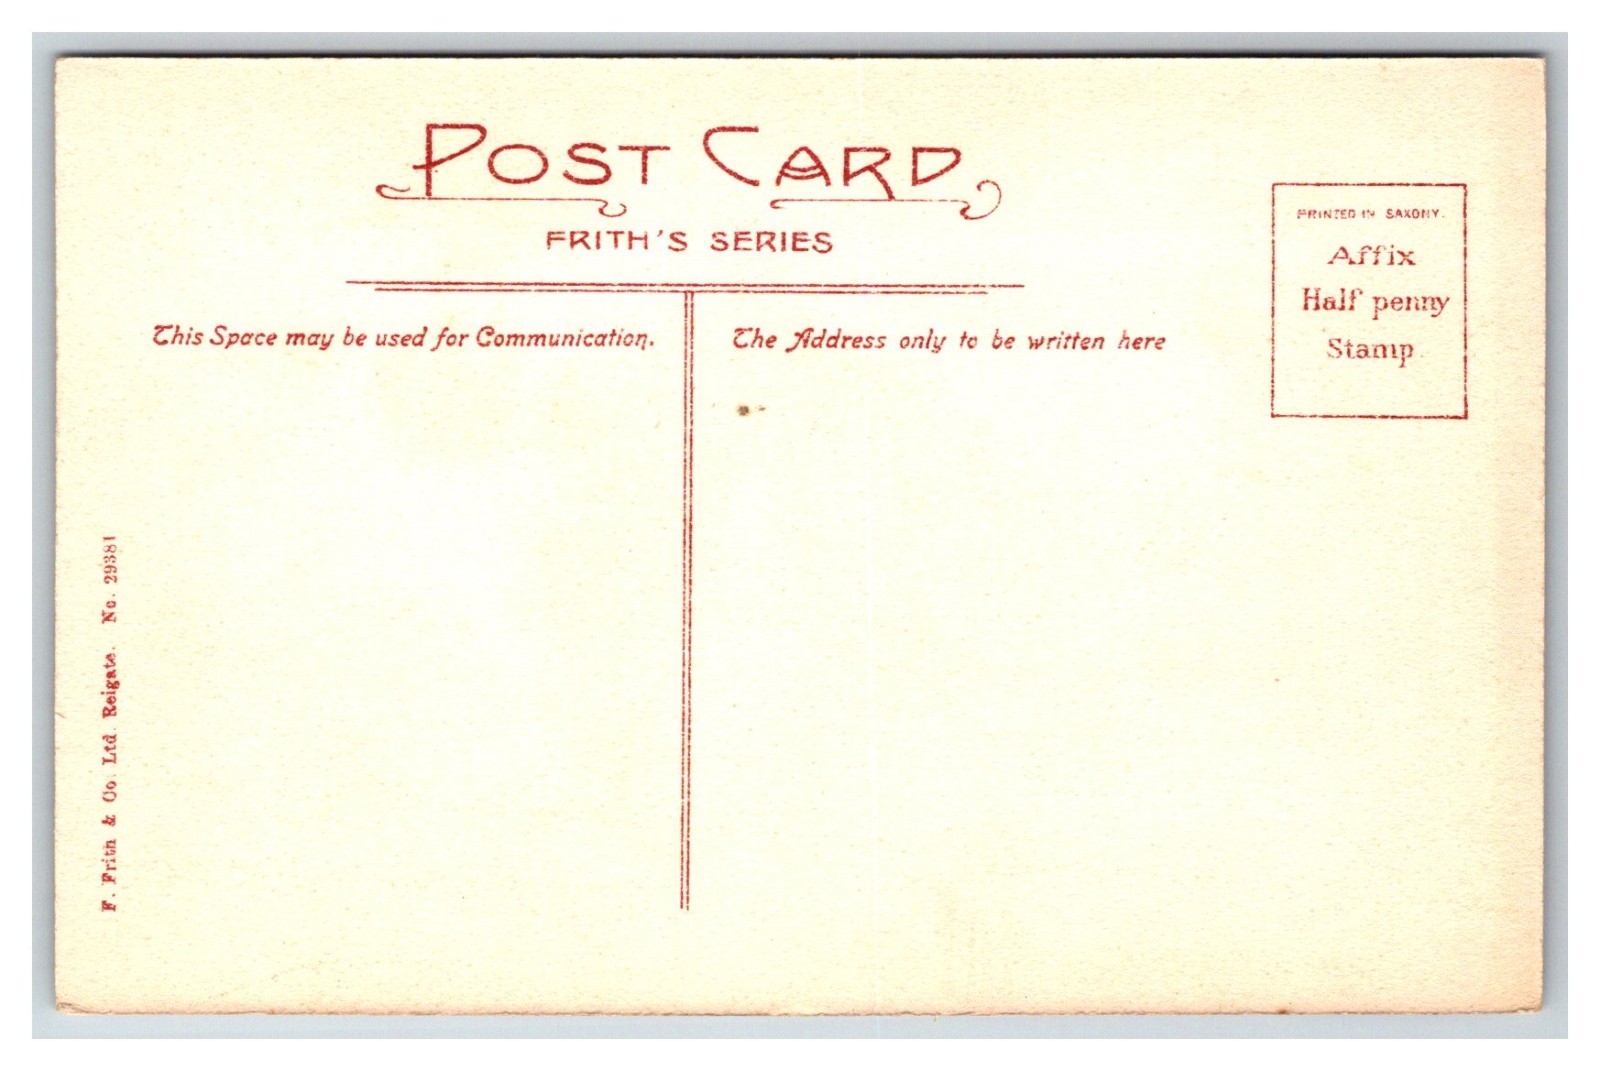 POST CARD
FRITH'S SERIES
PRINTED IN SAXONY.
Affix
Half penny
Stamp
This Space may be used for Communication.
The Address only to be written here
F. Frith & Co. Ltd. Reigate. No. 29381